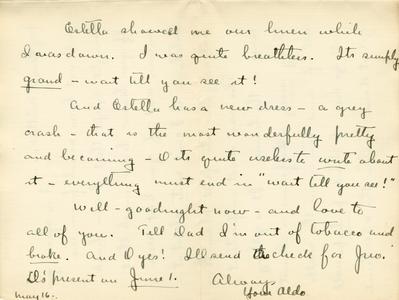 Estella showed me our linen while
I was down. I was quite breathless. Its simply
grand - wait till you see it!
And Estella has a new dress - a grey
crash - that is the most wonderfully pretty
and becoming - O its quite useless to write about
it - everything must end in "wait till you see!"
Well - goodnight now - and love to
all of you. Tell Dad I'm out of tobacco and
broke. And O yes! I'll send check for Jno.
D's present on June 1.
Always
Your Aldo
May 16.